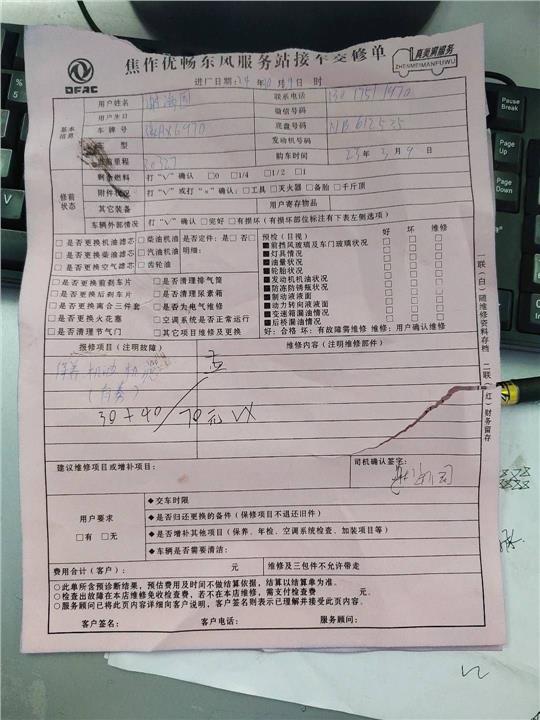 焦作优畅东风服务站接车交修单
DFAC
真美嘛服务
ZHENMEIMANFUWU
进厂日期：24年10月9日 时
基本信息
用户姓名
联系电话
用户生日
微信号码
车牌号
底盘号码
NB612535
车型
发动机号码
修前里程
20327
购车时间
23年3月9日
修前状态
剩余燃料
打"V"确认 □0 □1/4 □1/2 □1
附件状况
打"V"或打"×"确认：□工具 □灭火器 □备胎 □千斤顶
其它装备
用户寄存物品
车辆外部情况
打"V"确认 □完好 □有损坏(有损坏部位标注有下表左侧选项)
□是否更换机油滤芯 □柴油机油 是否定件：是□ 否□
□是否更换柴油滤芯 □汽油机油 明细：
□是否更换空气滤芯 □齿轮油
□是否更换前刹车片 □是否清理排气筒
□是否更换后刹车片 □是否清理尿素箱
□是否更换离合三件套 □是否为电气维修
□是否更换火花塞 □空调系统是否正常运行
□是否清理节气门 □其它项目维修及更换
预检(目视) 好 坏 维修
■前挡风玻璃及车门玻璃状况
■灯具情况
■油量状况
■轮胎状况
■发动机机油状况
■防冻防锈瓶状况
■制动液液面
■动力转向液液面
■变速箱漏油情况
■后桥漏油情况
好：合格 坏：有故障需维修 维修：用户确认维修
报修项目(注明故障)
维修内容(注明维修部件)
保养 机油 机滤
(自带)
30+40
70元 VX
建议维修项目或增补项目：
司机确认签字：
用户要求
□有 □无
◆交车时限
◆是否归还更换的备件(保修项目不退还旧件)
◆是否增补其他项目(保养、年检、空调系统检查、加装项目等)
◆车辆是否需要清洁：
费用合计(客户)： 元
维修及三包件不允许带走
○此单所含预诊断结果，预估费用及时间不做结算依据，结算以结算单为准。
○检查出故障在本店维修免收检查费，若不在本店维修，需支付检查费 元。
○服务顾问已将此页内容详细向客户说明，客户签名则表示已理解并接受此页内容。
客户签名： 客户电话： 服务顾问：
一联(白)随维修资料存档 二联(红)财务留存
Pause
Break
Page
Up
Page
Down